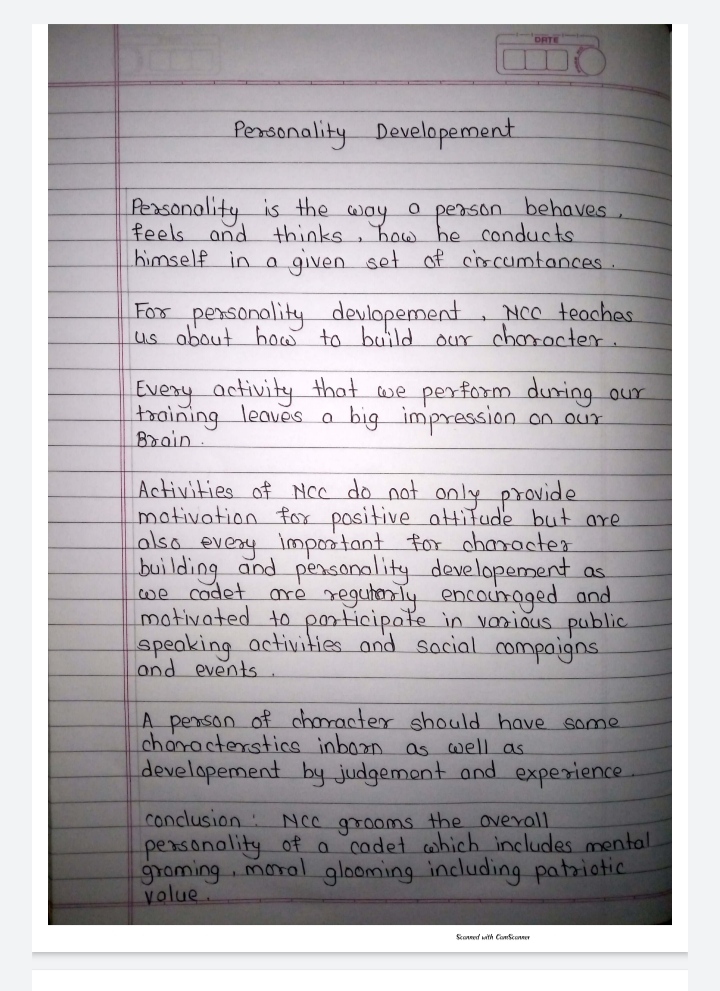 DATE
Personality Developement
Personality is the way a person behaves,
feels and thinks, how he conducts
himself in a given set of circumtances.
For personality devlopement, NCC teaches
us about how to build our character.
Every activity that we perform during our
training leaves a big impression on our
Brain.
Activities of NCC do not only provide
motivation for positive attitude but are
also every important for character
building and personality developement as
we cadet are regularly encouraged and
motivated to participate in various public
speaking activities and social compaigns
and events.
A person of character should have some
characterstics inborn as well as
developement by judgement and experience.
conclusion: NCC grooms the overall
personality of a cadet which includes mental
groming, moral glooming including patriotic
value.
Scanned with CamScanner